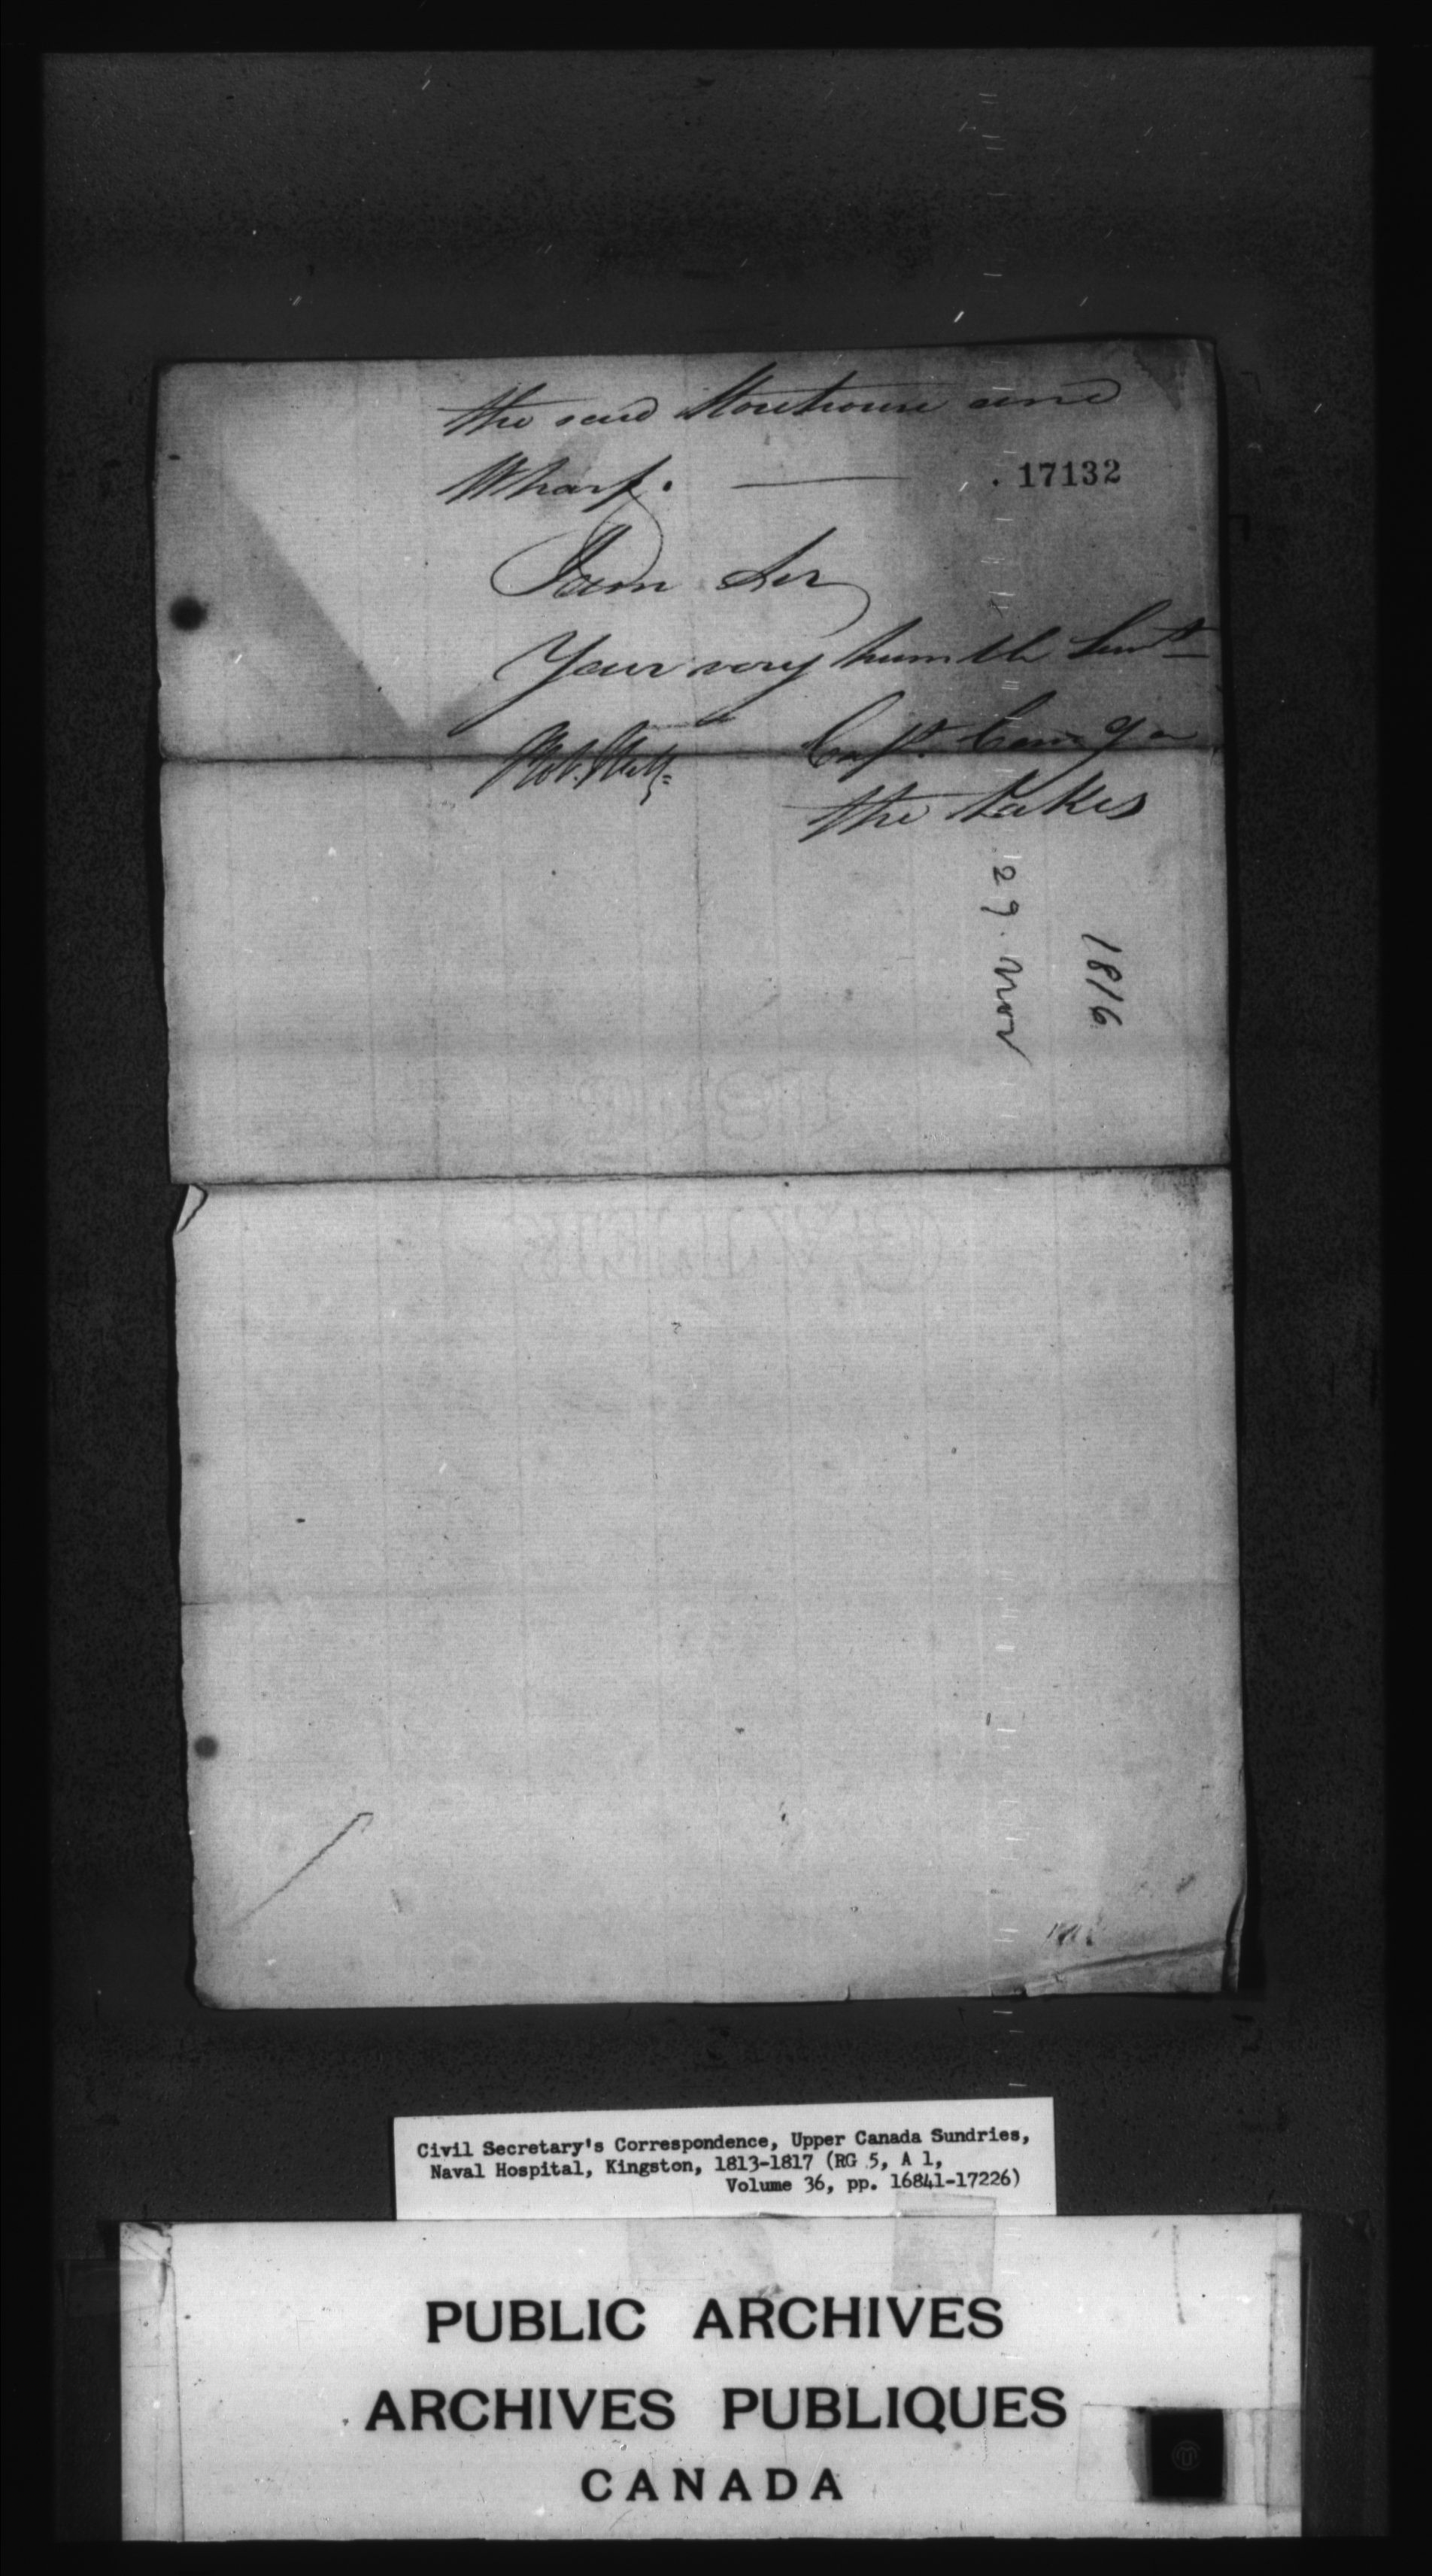 the said Storehouse and
Wharf. —
. 17132
I am Sir
Your very humble Servt
Capt. Comg on
the Lakes
29. Nov
1816
Civil Secretary's Correspondence, Upper Canada Sundries,
Naval Hospital, Kingston, 1813-1817 (RG 5, A 1,
Volume 36, pp. 16841-17226)
PUBLIC ARCHIVES
ARCHIVES PUBLIQUES
CANADA